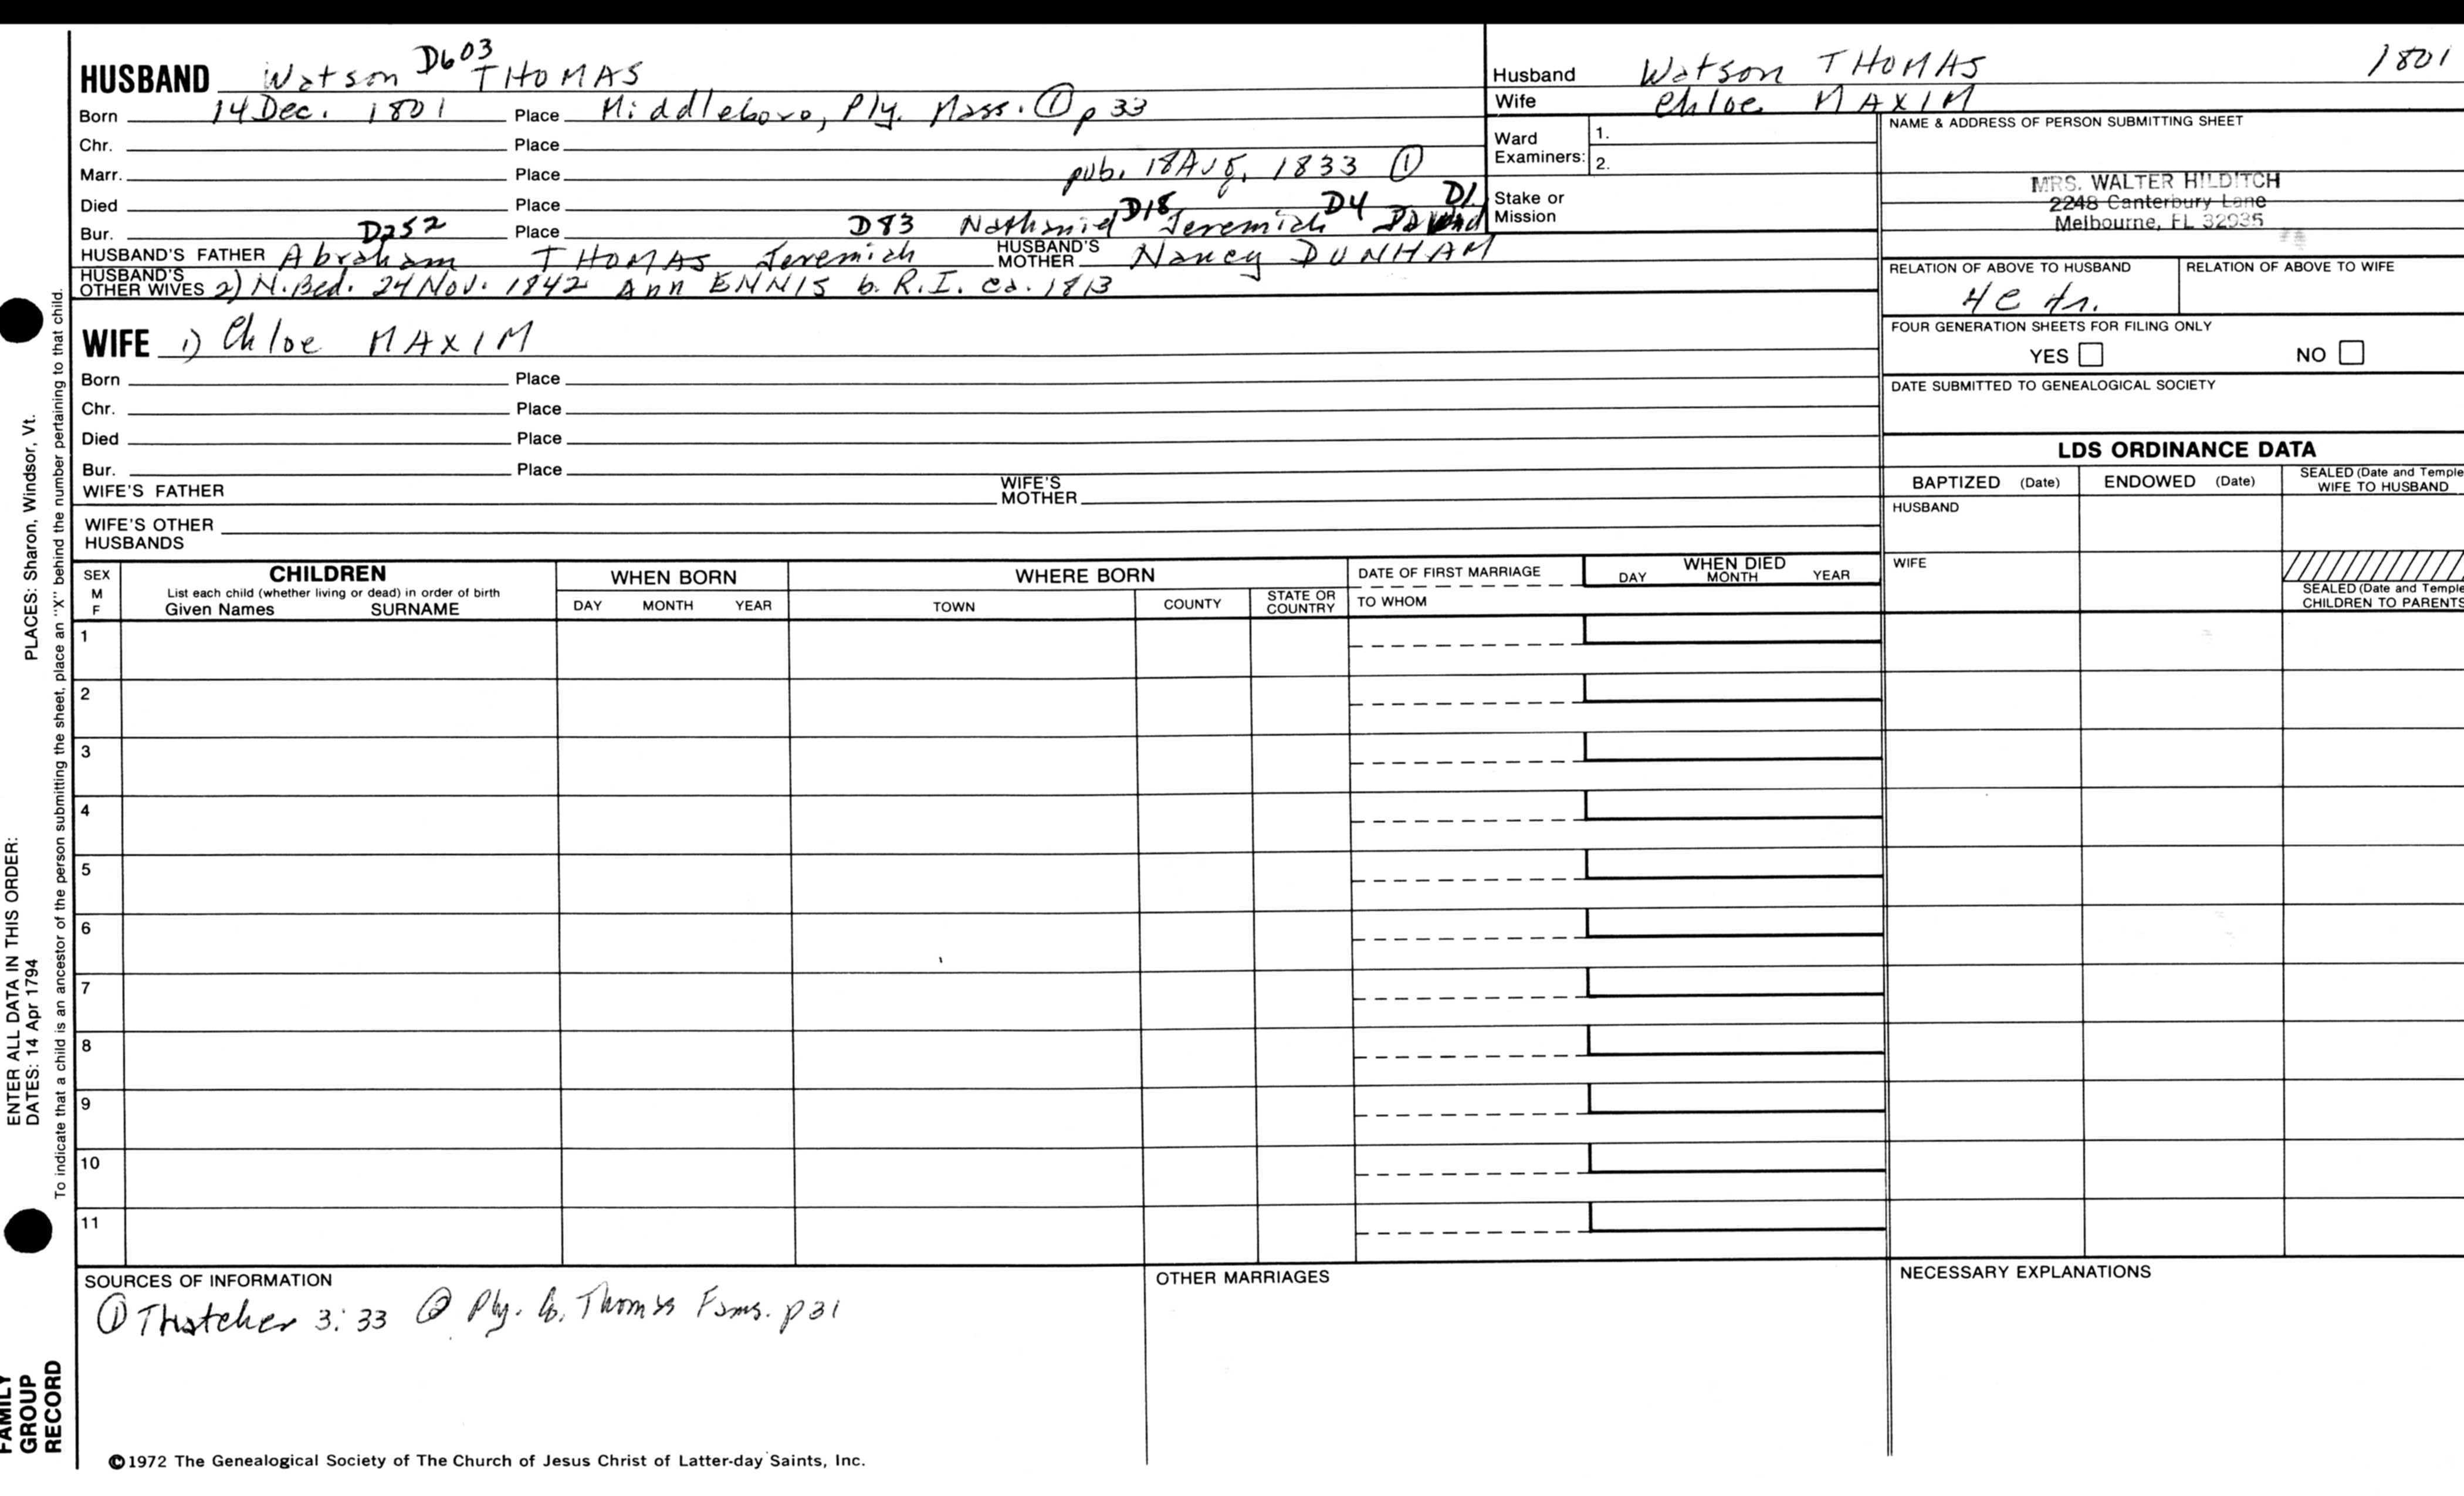 D603
HUSBAND Watson THOMAS
Born 14 Dec. 1801 Place Middleboro, Ply. Mass. ① p 33
Chr. Place
Marr. Place pub. 18 Aug. 1833 ①
Died Place
D18 D4 D1
Bur. D252 Place D83 Nathaniel Jeremiah David
HUSBAND'S FATHER Abraham THOMAS Jeremiah HUSBAND'S MOTHER Nancy DUNHAM
HUSBAND'S OTHER WIVES 2) N. Bed. 24 Nov. 1842 Ann ENNIS b. R.I. ca. 1813
WIFE 1) Chloe MAXIM
Born Place
Chr. Place
Died Place
Bur. Place
WIFE'S FATHER WIFE'S MOTHER
WIFE'S OTHER HUSBANDS
Husband Watson THOMAS 1801
Wife Chloe MAXIM
Ward Examiners: 1.
2.
Stake or Mission
NAME & ADDRESS OF PERSON SUBMITTING SHEET
MRS. WALTER HILDITCH
2248 Canterbury Lane
Melbourne, FL 32935
RELATION OF ABOVE TO HUSBAND RELATION OF ABOVE TO WIFE
4C
FOUR GENERATION SHEETS FOR FILING ONLY
YES NO
DATE SUBMITTED TO GENEALOGICAL SOCIETY
LDS ORDINANCE DATA
BAPTIZED (Date) ENDOWED (Date) SEALED (Date and Temple
WIFE TO HUSBAND
HUSBAND
WIFE
SEALED (Date and Temple
CHILDREN TO PARENTS
SEX M F
CHILDREN
List each child (whether living or dead) in order of birth
Given Names SURNAME
WHEN BORN
DAY MONTH YEAR
WHERE BORN
TOWN COUNTY STATE OR COUNTRY
DATE OF FIRST MARRIAGE
TO WHOM
WHEN DIED
DAY MONTH YEAR
1
2
3
4
5
6
7
8
9
10
11
SOURCES OF INFORMATION
① Thatcher 3:33 ② Ply. Co. Thomas Fams. p 31
OTHER MARRIAGES
NECESSARY EXPLANATIONS
©1972 The Genealogical Society of The Church of Jesus Christ of Latter-day Saints, Inc.
FAMILY
GROUP
RECORD
ENTER ALL DATA IN THIS ORDER:
DATES: 14 Apr 1794 PLACES: Sharon, Windsor, Vt.
To indicate that a child is an ancestor of the person submitting the sheet, place an "X" behind the number pertaining to that child.